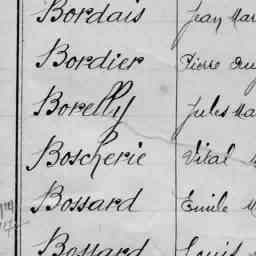 Bordais Jean Mar
Bordier Pierre Aug
Borelly Jules Ma
Boscherie Vital
Bossard Emile M
Bossard Louis